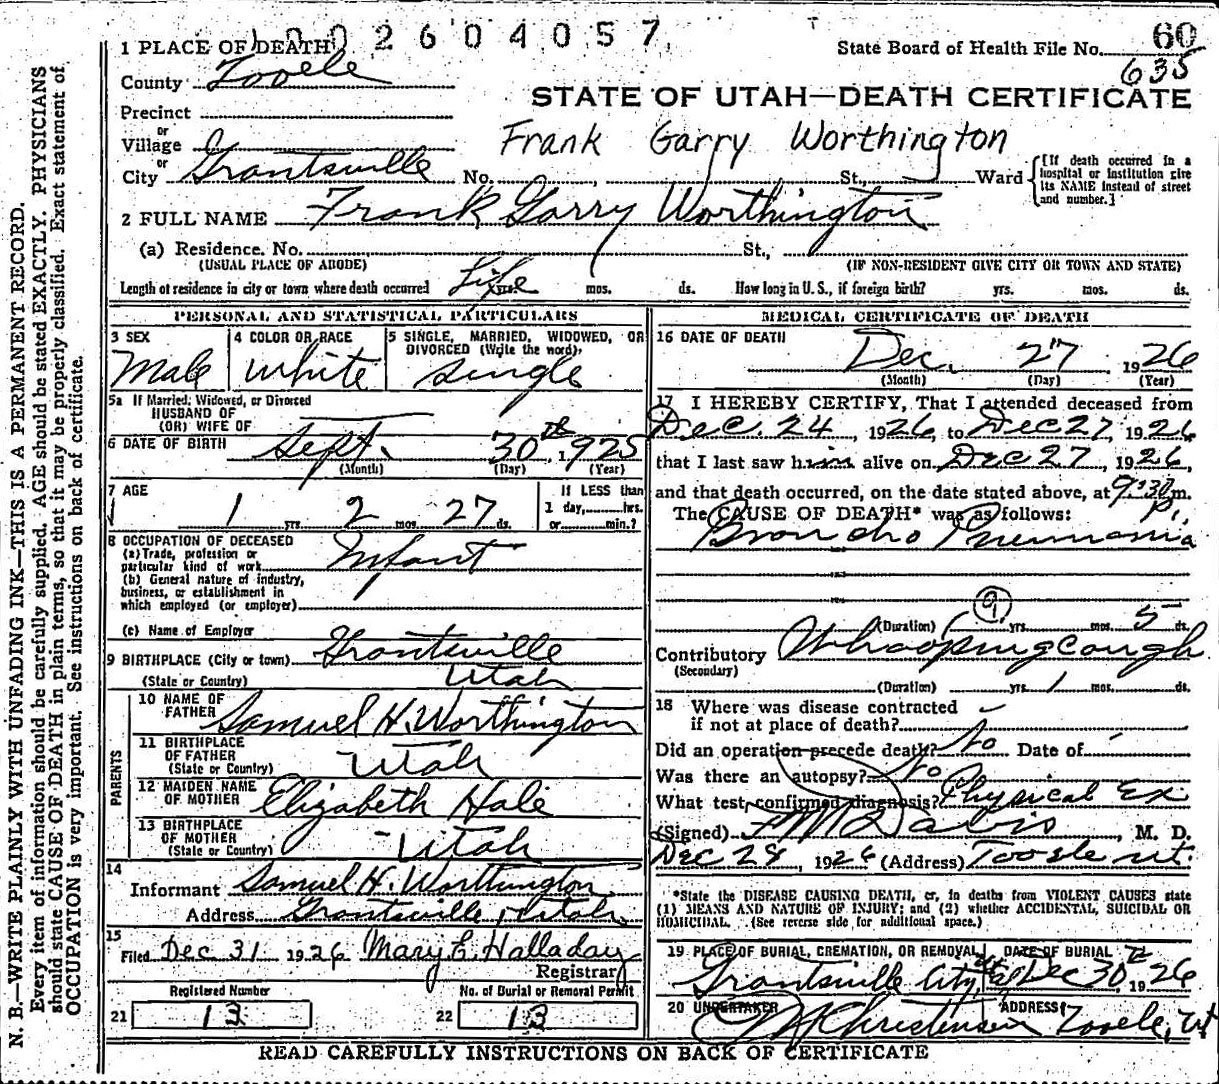 1002604057
60
State Board of Health File No. 635
1 PLACE OF DEATH
County Tooele
STATE OF UTAH—DEATH CERTIFICATE
Precinct
or
Village
Frank Garry Worthington
or
City Grantsville No. St., Ward
[If death occurred in a hospital or institution give its NAME instead of street and number.]
2 FULL NAME Frank Garry Worthington
(a) Residence. No. St.,
(USUAL PLACE OF ABODE) (IF NON-RESIDENT GIVE CITY OR TOWN AND STATE)
Length of residence in city or town where death occurred Life yrs. mos. ds. How long in U. S., if foreign birth? yrs. mos. ds.
PERSONAL AND STATISTICAL PARTICULARS
3 SEX
Male
4 COLOR OR RACE
White
5 SINGLE, MARRIED, WIDOWED, OR
DIVORCED (Write the word)
Single
5a If Married, Widowed, or Divorced
HUSBAND OF
(OR) WIFE OF
6 DATE OF BIRTH Sept. 30th 1925
(Month) (Day) (Year)
7 AGE
1 yrs 2 mos. 27 ds.
If LESS than
1 day, hrs.
or min.?
8 OCCUPATION OF DECEASED
(a) Trade, profession or
particular kind of work Infant
(b) General nature of industry,
business, or establishment in
which employed (or employer)
(c) Name of Employer
9 BIRTHPLACE (City or town) Grantsville
(State or Country) Utah
PARENTS
10 NAME OF
FATHER Samuel H. Worthington
11 BIRTHPLACE
OF FATHER
(State or Country) Utah
12 MAIDEN NAME
OF MOTHER Elizabeth Hale
13 BIRTHPLACE
OF MOTHER
(State or Country) Utah
14
Informant Samuel H. Worthington
Address Grantsville, Utah
15
Filed Dec 31 1926 Mary E. Halladay
Registrar
Registered Number
21 13
No. of Burial or Removal Permit
22 13
MEDICAL CERTIFICATE OF DEATH
16 DATE OF DEATH
Dec. 27 1926
(Month) (Day) (Year)
17 I HEREBY CERTIFY, That I attended deceased from
Dec. 24, 1926, to Dec 27, 1926
that I last saw him alive on Dec 27, 1926,
and that death occurred, on the date stated above, at 9:30 P.m.
The CAUSE OF DEATH* was as follows:
Broncho Pneumonia
9
(Duration) yrs. mos. 5 ds.
Contributory Whooping cough
(Secondary)
(Duration) yrs. 1 mos. ds.
18 Where was disease contracted
if not at place of death?
Did an operation precede death? No Date of
Was there an autopsy? No
What test confirmed diagnosis? Physical Ex
(Signed) F M Davis, M. D.
Dec 28, 1926 (Address) Tooele Ut.
*State the DISEASE CAUSING DEATH, or, in deaths from VIOLENT CAUSES state
(1) MEANS AND NATURE OF INJURY; and (2) whether ACCIDENTAL, SUICIDAL OR
HOMICIDAL. (See reverse side for additional space.)
19 PLACE OF BURIAL, CREMATION, OR REMOVAL DATE OF BURIAL
Grantsville City, Dec 30th 1926
20 UNDERTAKER ADDRESS
Christensen Tooele, Ut
READ CAREFULLY INSTRUCTIONS ON BACK OF CERTIFICATE
N. B.—WRITE PLAINLY WITH UNFADING INK—THIS IS A PERMANENT RECORD.
Every item of information should be carefully supplied. AGE should be stated EXACTLY. PHYSICIANS
should state CAUSE OF DEATH in plain terms, so that it may be properly classified. Exact statement of
OCCUPATION is very important. See instructions on back of certificate.